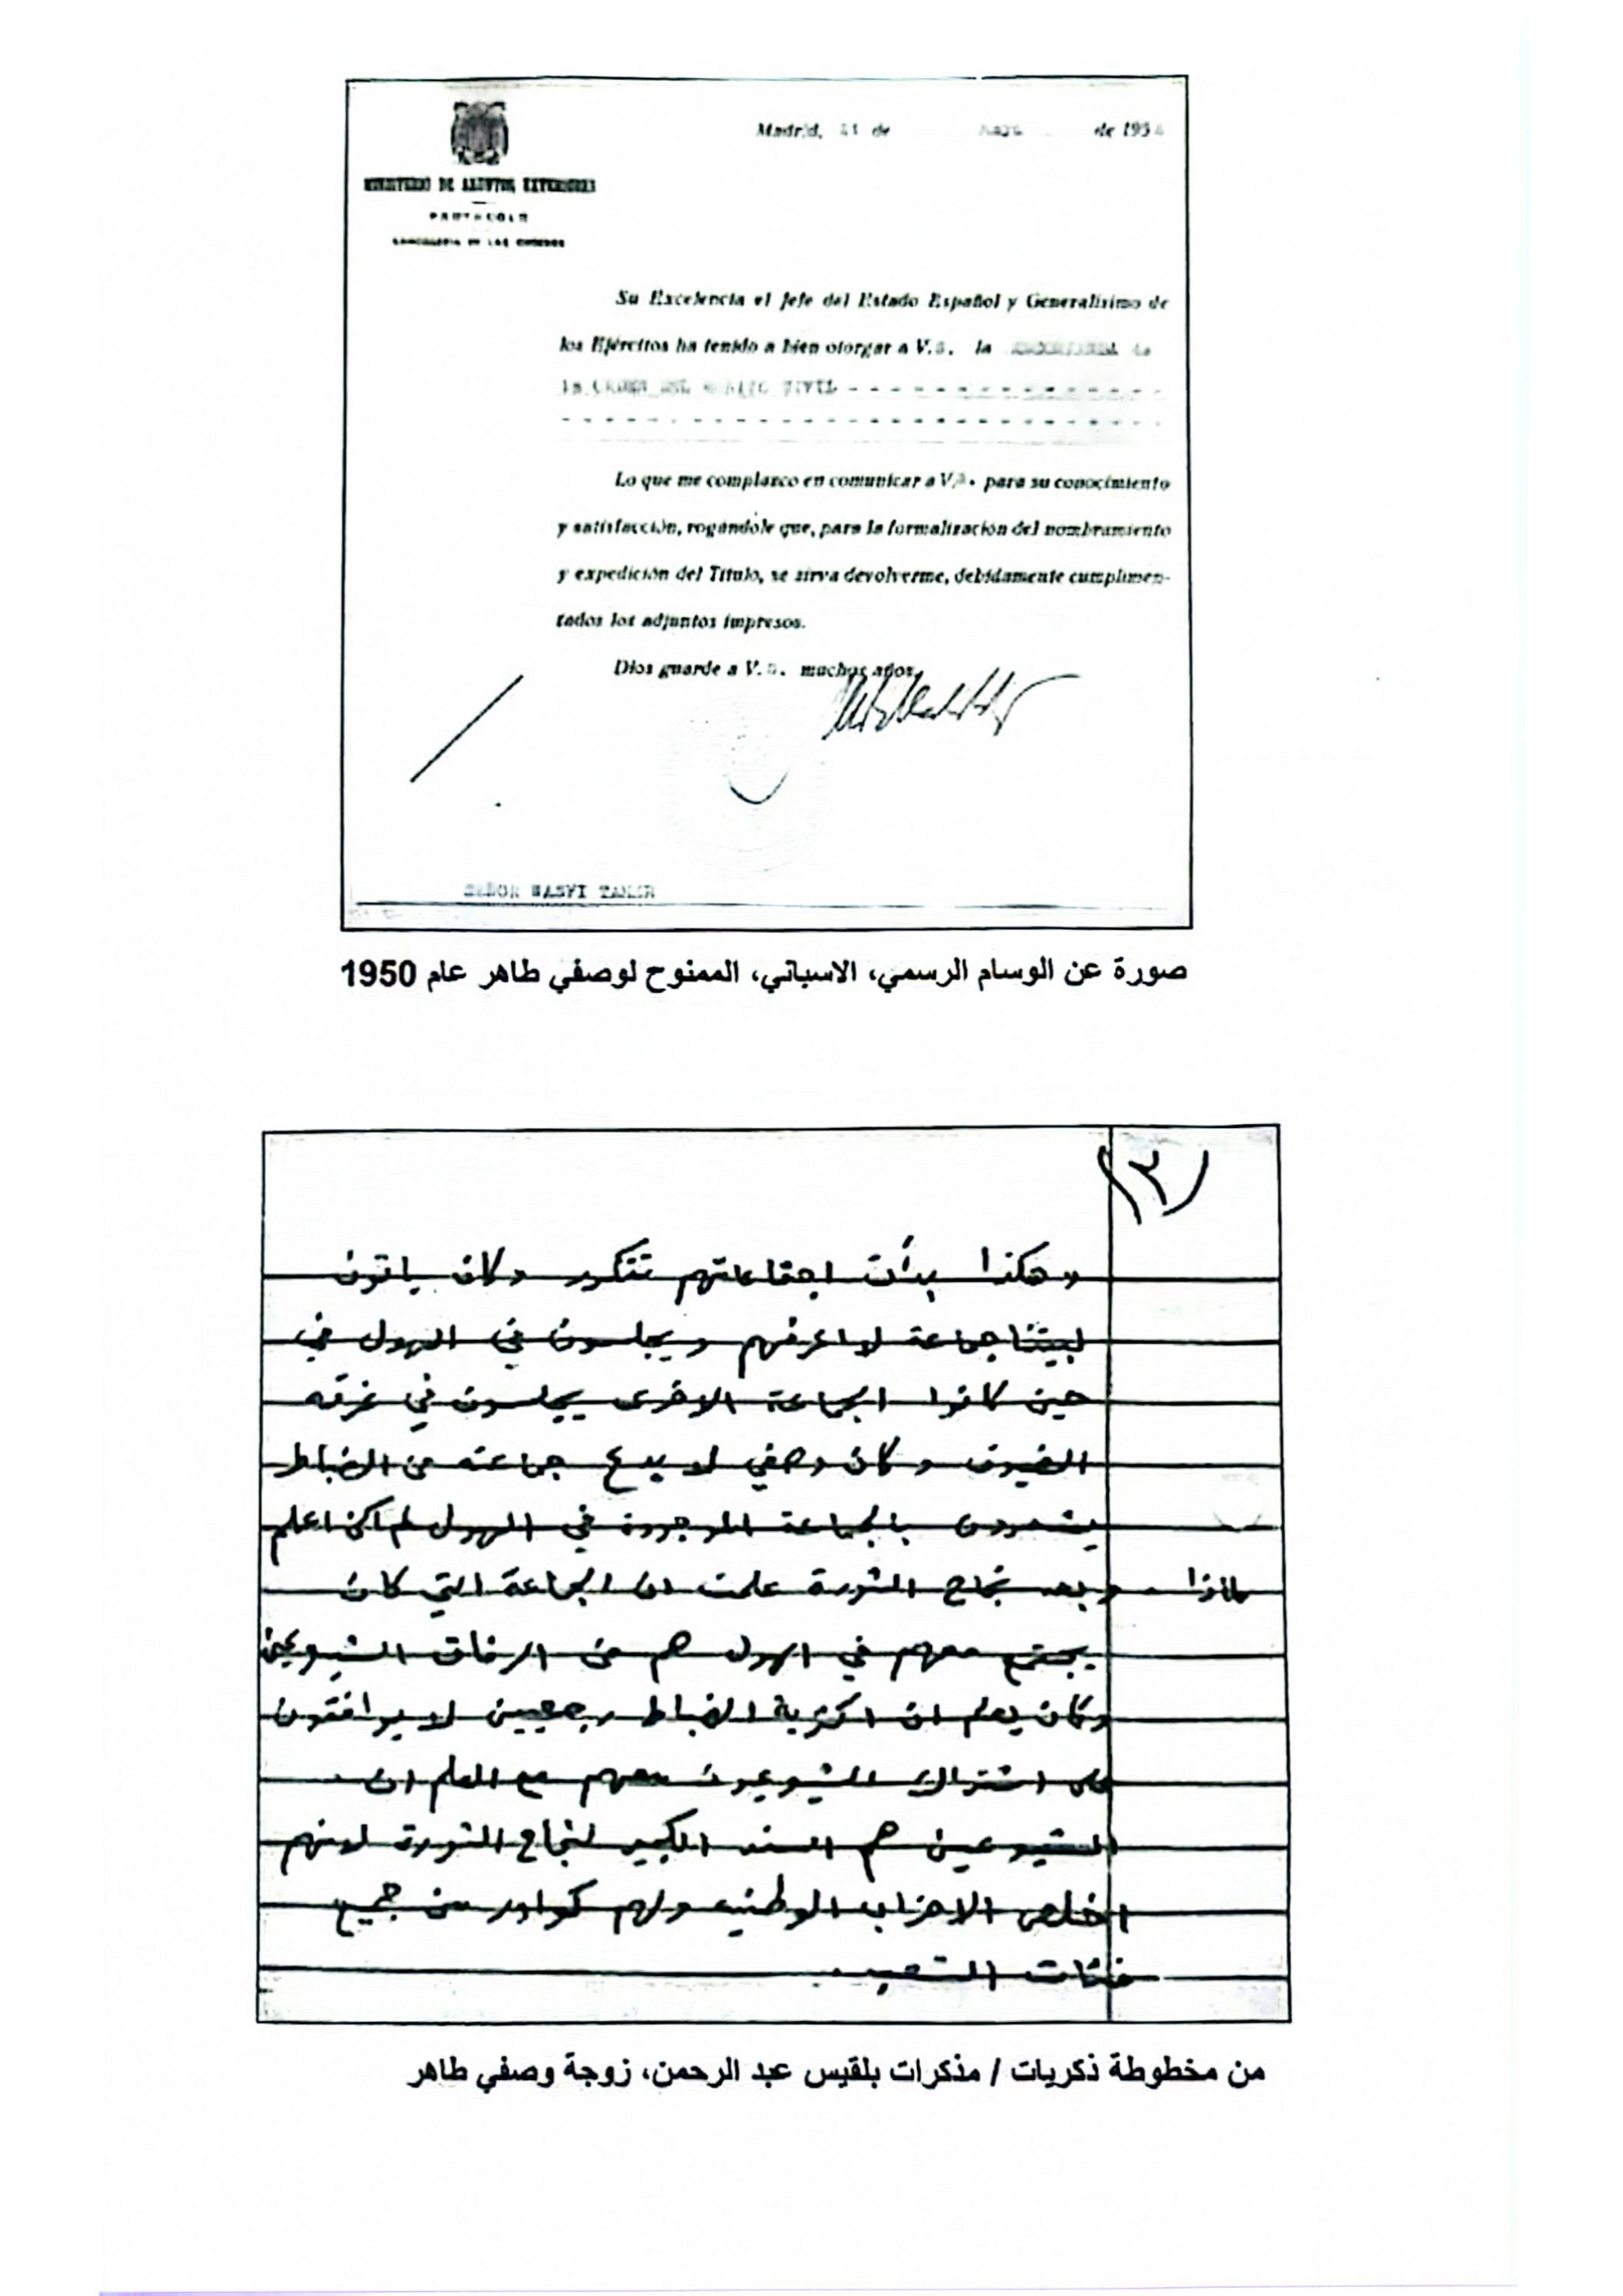 Madrid, de de 195
MINISTERIO DE ASUNTOS EXTERIORES
PROTOCOLO
CANCILLERIA DE LAS ORDENES
Su Excelencia el Jefe del Estado Español y Generalísimo de
los Ejércitos ha tenido a bien otorgar a V. la de
la ORDEN DEL MERITO CIVIL
Lo que me complazco en comunicar a V. para su conocimiento
y satisfacción, rogándole que, para la formalización del nombramiento
y expedición del Título, se sirva devolverme, debidamente cumplimen-
tados los adjuntos impresos.
Dios guarde a V. muchos años.
SEÑOR WASFI TAHIR
صورة عن الوسام الرسمي، الاسباني، الممنوح لوصفي طاهر عام 1950
(٣)
وهكذا بدأت اجتماعاتهم تتكرر وكان ياتون
لبيتنا جماعة لا اعرفهم ويجلسون في الهول في
حين كانوا الجماعة الاخرى يجلسون في غرفه
الضيوف وكان وصفي لا يدع جماعته من الضباط
يشعرون بالجماعة الموجودة في الهول لم اكن اعلم
لماذا . وبعد نجاح الثورة علمت ان الجماعة التي كان
يجتمع معهم في الهول هم من الرفاق الشيوعين
وكان يعلم ان اكثرية الضباط رجعيين لا يوافقون
على اشتراك الشيوعيون معهم مع العلم ان
الشيوعين هم السند الكبير لنجاح الثورة لانهم
اخلص الاحزاب الوطنيه ولهم كوادر من جميع
فئات الشعب .
من مخطوطة ذكريات / مذكرات بلقيس عبد الرحمن، زوجة وصفي طاهر